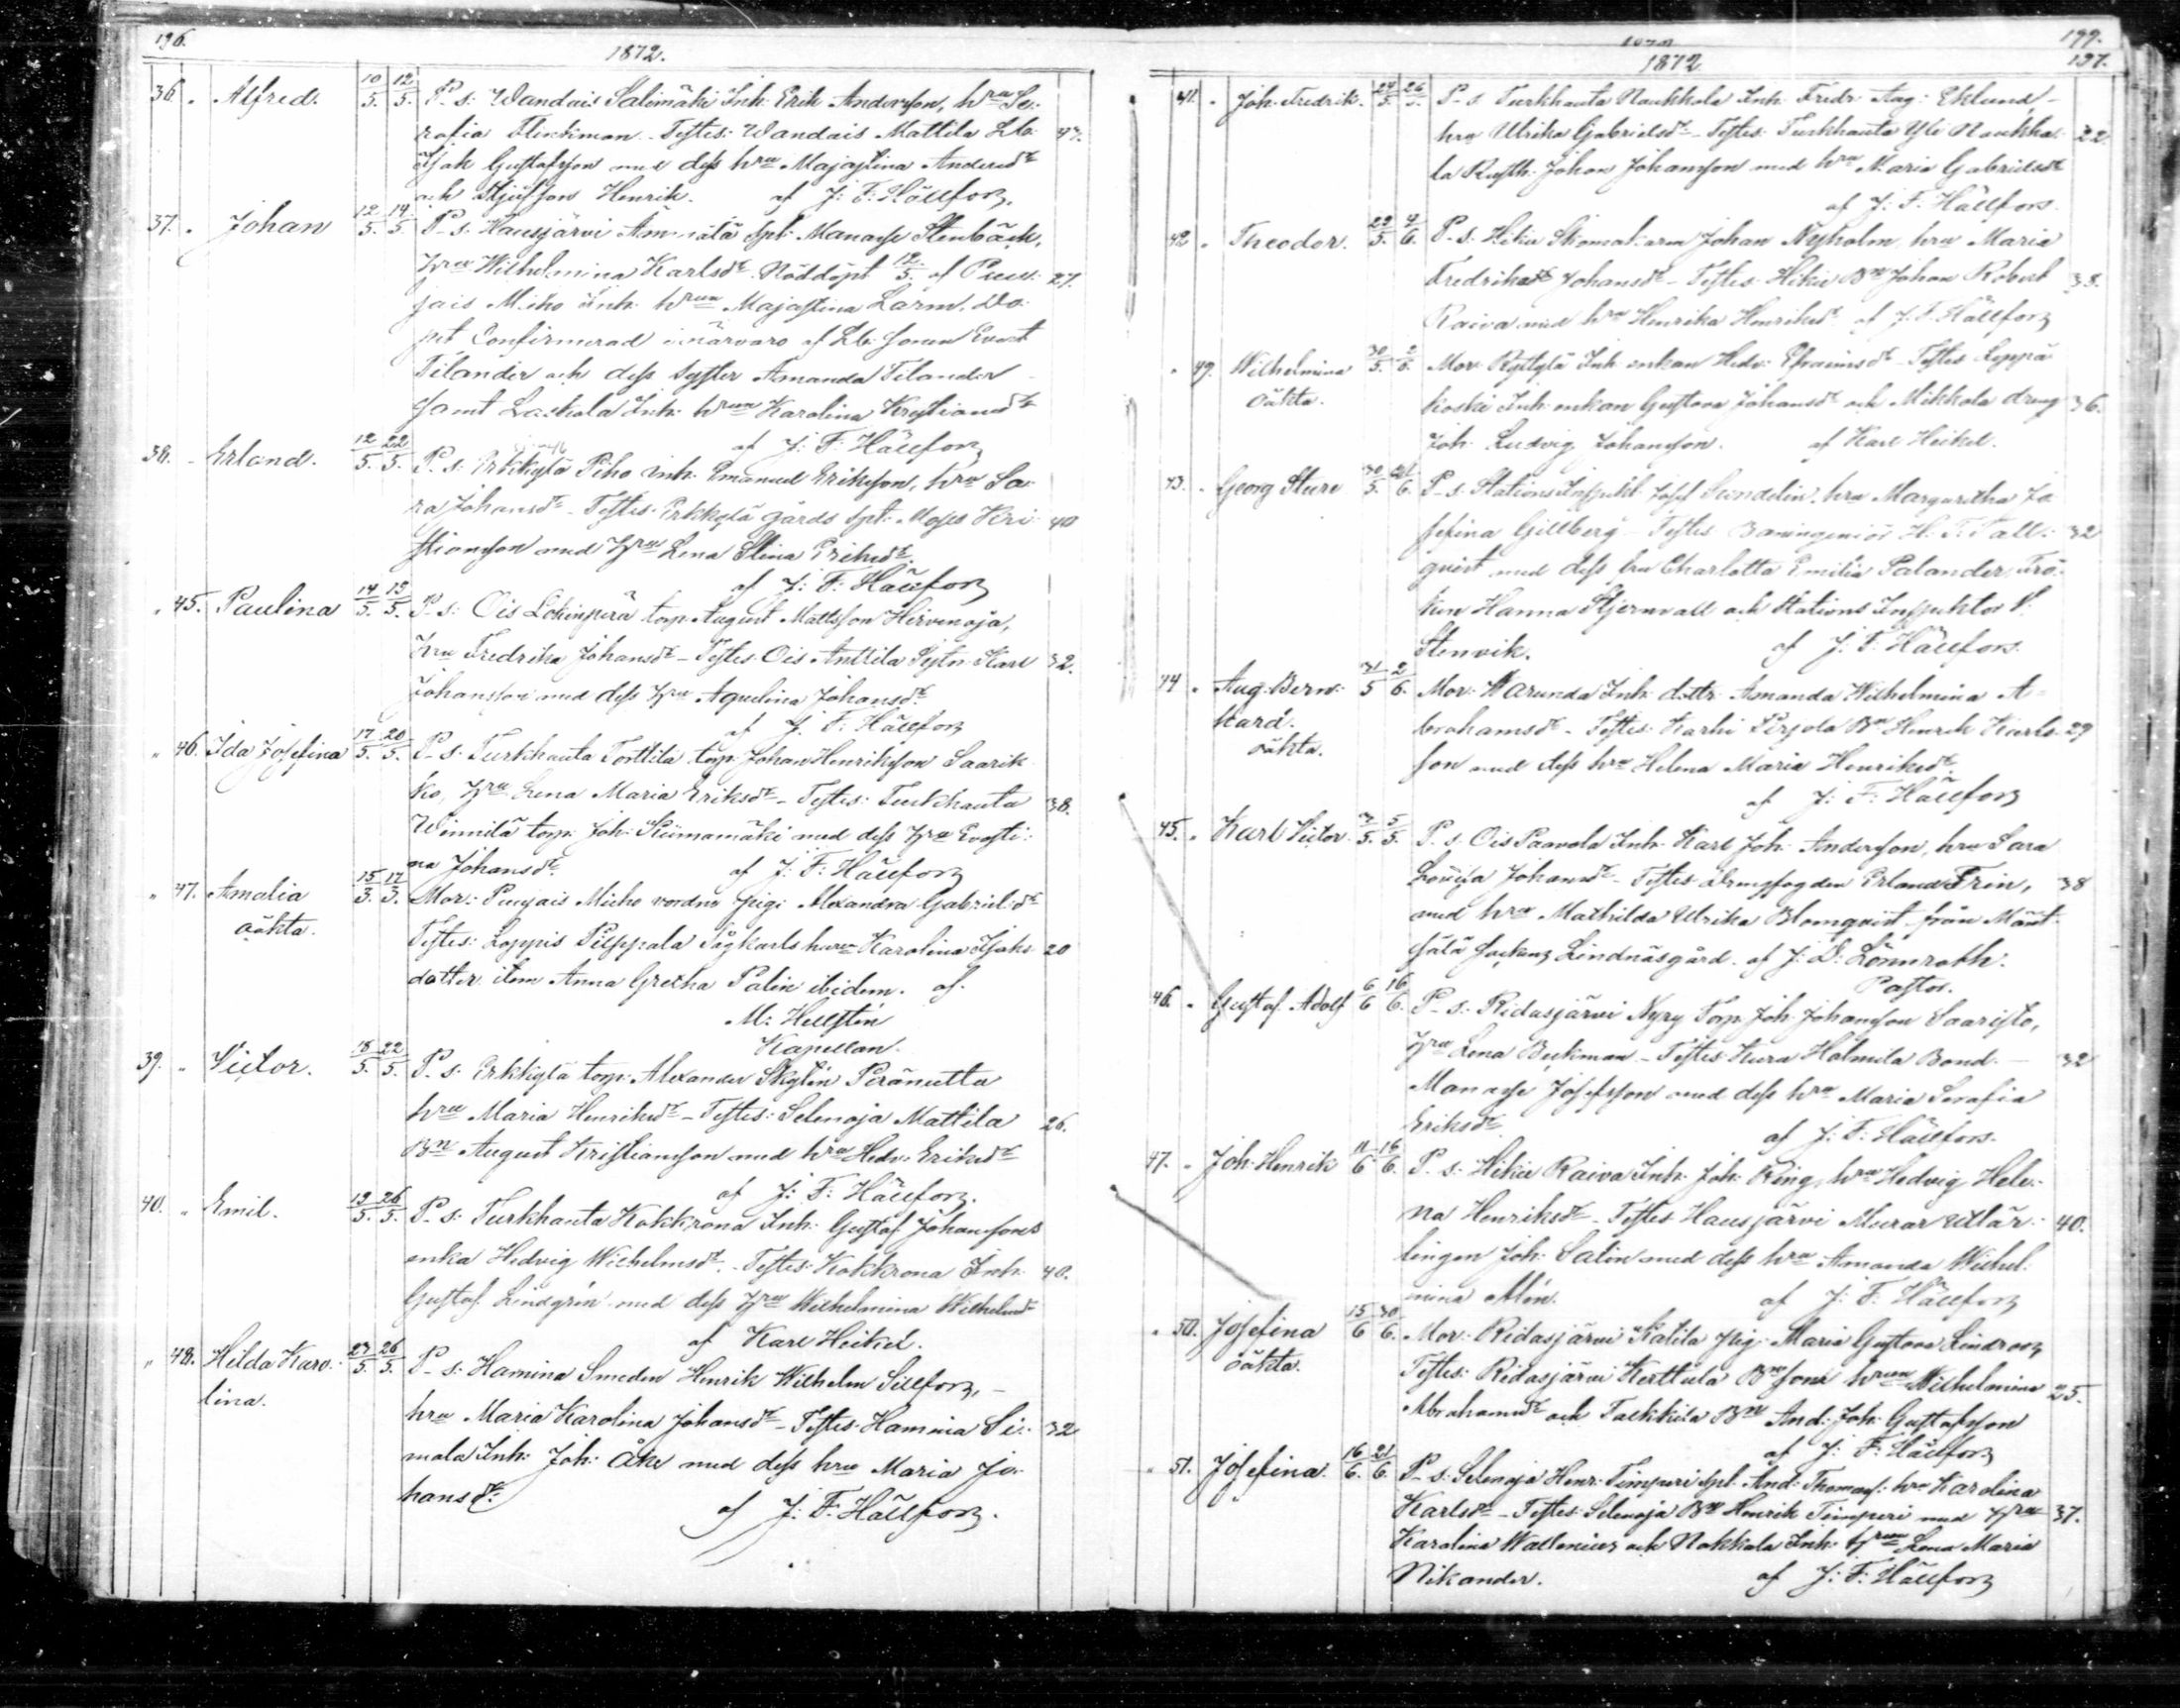 196.
1872.
36. " Alfred. 10/5. 12/5. P. s: Wandais Salimäki Inh: Erik Andersson, hru Se-
rafia Flinkman. Testes: Wandais Mattila Lb: 47.
Isak Gustafsson med dess hru Majastina Andersdr
och Henrik. af J: F: Hällfors.
37. " Johan 12/5. 14/5. P. s. Hausjärvi Spl: Manasse Stenbäck,
Hru Wilhelmina Karlsdr. Nöddöpt 12/5 af Puu- 27.
jais Miko Inh: hrun Majastina Larm. Do-
pet Confirmerad i närvaro af Lb: sonen Evert
Tilander och dess syster Amanda Tilander
samt Laskola Inh: hrun Karolina Kristiansdr
af J: F: Hällfors
38. " Erland. 12/5. 22/5. P. s. Erkkylä Piho Inh: Emanuel Eriksson, hru Sa-
ra Johansdr. Testes: Erkkylä gårds Spl: Moses Kri- 40
stiansson med Hru Lena Stina Eriksdr.
af J: F: Hällfors
" 45. Paulina 14/5. 15/5. P. s: Ois Lokinperä torp. August Mattsson Hirvenoja,
Hru Fredrika Johansdr. Testes. Ois Anttila Karl 32.
Johansson med dess Hru Aqvilina Johansdr.
af J: F. Hällfors
" 46. Ida Josefina 17/5. 20/5. P. s: Turkhauta Torttila torp. Johan Henriksson Saarik-
ko, Hru Lena Maria Eriksdr. Testes: Turkhauta 38.
Winnilä torp. Joh: Kiimamäki med dess Hru Evasti-
na Johansdr. af J: F: Hällfors
" 47. Amalia 15/3. 17/3. Mor: Puujais Micho vordne pigi Alexandra Gabrielsdr
oäkta. Testes: Loppis Pilppala Sågkarls hrun Karolina Isaks- 20
dotter item Anna Gretha Palin ibidem. af
M: Hellstén
Kapellan.
39. " Victor. 18/5. 22/5. P. s. Erkkylä torp. Alexander Skytén Peränutta
hru Maria Henriksdr. Testes: Selenoja Mattila 26.
Bn August Kristiansson med hru Hedv: Eriksdr
af J: F: Hällfors.
40. " Emil. 19/5. 26/5. P. s: Turkhauta Kokkrona Inh: Gustaf Johanssons
enka Hedvig Wilhelmsdr. Testes: Kokkrona Inh: 40.
Gustaf Lindgrén med dess Hru Wilhelmina Wilhelmsdr
af Karl Heikel.
" 48. Hilda Karo- 23/5. 26/5. P. s: Hamina Smeden Henrik Wilhelm Sillfors,
lina. hru Maria Karolina Johansdr. Testes: Hamina Si- 32
mala Inh: Joh: Åke med dess hru Maria Jo-
hansdr. af J: F: Hällfors.
199.
1872.
197.
41. " Joh: Fredrik. 24/5. 26/5. P. s. Turkhauta Naukkola Inh: Fredr: Aug: Eklund
hru Ulrika Gabrielsdr. Testes: Turkhauta Yli Naukko- 22.
la Rusth: Johan Johansson med hru Maria Gabrielsdr
af J: F: Hällfors.
42 " Theodor. 29/5. 4/6. P. s. Hikiä Johan Nyholm, hru Maria
Fredrika Johansdr. Testes: Hikiä Bn Johan Robert 38.
Raiva med hru Henrika Henriksdr. af J: F: Hällfors
" 49. Wilhelmina 30/5. 2/6. Mor. Ryttylä Inh: enkan Hedv: Efraimsdr. Testes Leppä-
oäkta. koski Inh: enkan Gustava Johansdr och Mikkola dreng 36.
Joh: Ludvig Johansson. af Karl Heikel.
43. " Georg Sture 30/5. 21/6. P. s. Stations Inspekt: Josef Sundelin, hru Margaretha Jo-
sefina Gillberg. Testes Baningeniör H. T. Tall- 32
qvist med dess fru Charlotta Emilia Palander, Frö-
ken Hanna Stjernvall och Stations Inspektor V.
Stenvik. af J: F: Hällfors.
44 " Aug: Bern- 31/5 2/6. Mor: Karunda Inh: dottr: Amanda Wilhelmina A-
hard. brahamsdr. Testes: Karhi Pirjola Bn Henrik Karls- 29
oäkta. son med dess hru Helena Maria Henriksdr.
af J: F: Hällfors
45. " Karl Victor. 3/5. 5/5. P. s. Ois Paavola Inh: Karl Joh: Andersson, hru Sara
Lovisa Johansdr. Testes Drengfogden Erland Frin, 38
med hru Mathilda Ulrika Blomqvist från Mänt-
sälä socken Lindnäsgård. af J: D: Lönnroth.
Pastor.
46. " Gustaf Adolf 6/6 16/6. P. s: Ridasjärvi Nyry Torp. Joh: Johansson Saaristo,
Hru Lena Beckman. Testes Kura Holmila Bond. 32
Manasse Josefsson med dess hru Maria Serafia
Eriksdr. af J: F: Hällfors.
47. " Joh: Henrik 11/6. 16/6. P. s: Hikiä Raiva Inh: Joh: Ring, hru Hedvig Hele-
na Henriksdr. Testes Hausjärvi Murar utlär- 40.
lingen Joh: Salin med dess hru Amanda Wilhel-
mina Alén. af J: F: Hällfors
" 50. Josefina 15/6 30/6. Mor: Ridasjärvi Katila pig. Maria Gustava Lindroos
oäkta. Testes: Ridasjärvi Kerttula Bne sone hrun Wilhelmina 25.
Abrahamsdr och Takkila Bn And: Joh: Gustafsson
af J: F: Hällfors
" 51. Josefina. 16/6. 21/6. P. s: Selenoja Henr: Timperi Spl: And: Thomas: hru Karolina
Karlsdr. Testes Selenoja Bn Henrik Timperi med Hru 37.
Karolina Wallenius och Nokkala Inh: Hrun Lena Maria
Nikander. af J: F: Hällfors